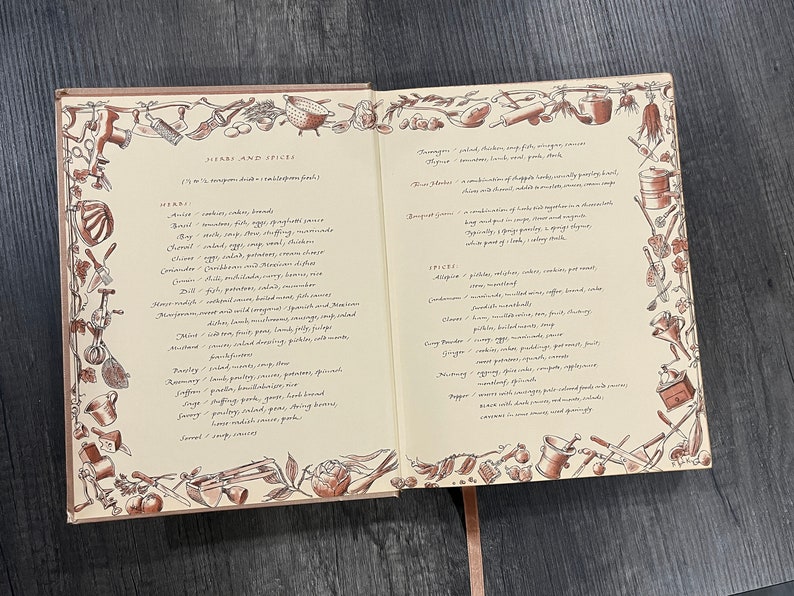 HERBS AND SPICES
(¼ to ½ teaspoon dried = 1 tablespoon fresh)
HERBS:
Anise / cookies, cakes, breads
Basil / tomatoes, fish, eggs, spaghetti sauce
Bay / stock, soup, stew, stuffing, marinade
Chervil / salad, eggs, soup, veal, chicken
Chives / eggs, salad, potatoes, cream cheese
Coriander / Caribbean and Mexican dishes
Cumin / chili, enchilada, curry, beans, rice
Dill / fish, potatoes, salad, cucumber
Horse-radish / cocktail sauce, boiled meat, fish sauces
Marjoram, sweet and wild (oregano) / Spanish and Mexican
dishes, lamb, mushrooms, sausage, soup, salad
Mint / iced tea, fruit, peas, lamb, jelly, juleps
Mustard / sauces, salad dressing, pickles, cold meats,
frankfurters
Parsley / salad, meats, soup, stew
Rosemary / lamb, poultry, sauces, potatoes, spinach
Saffron / paella, bouillabaisse, rice
Sage / stuffing, pork, goose, herb bread
Savory / poultry, salad, peas, string beans,
horse-radish sauce, pork
Sorrel / soup, sauces
Tarragon / salad, chicken, soup, fish, vinegar, sauces
Thyme / tomatoes, lamb, veal, pork, stock
Fines Herbes / a combination of chopped herbs, usually parsley, basil,
chives and chervil, added to omelets, sauces, cream soups
Bouquet Garni / a combination of herbs tied together in a cheesecloth
bag and put in soups, stews and ragouts.
Typically, 3 sprigs parsley, 2 sprigs thyme,
white part of 1 leek, 1 celery stalk.
SPICES:
Allspice / pickles, relishes, cakes, cookies, pot roast,
stew, meatloaf
Cardamom / marinade, mulled wine, coffee, bread, cake,
Swedish meatballs
Cloves / ham, mulled wine, tea, fruit, chutney,
pickles, boiled meats, soup
Curry Powder / curry, eggs, marinade, sauce
Ginger / cookies, cake, puddings, pot roast, fruit,
sweet potatoes, squash, carrots
Nutmeg / eggnog, spice cake, compote, applesauce,
meatloaf, spinach
Pepper / WHITE with sausages, pale-colored foods and sauces;
BLACK with dark sauces, red meats, salads;
CAYENNE in some sauces, used sparingly